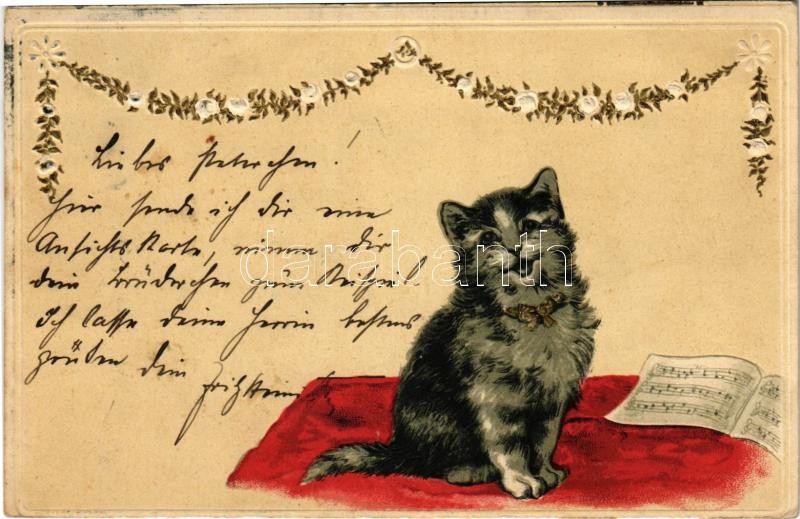 Liebes Peterchen!
hier sende ich dir eine
Ansichtskarte, nimm dir
dein Brüderchen zum Beispiel.
Ich lasse deine Herrin bestens
grüßen dein
darabanth